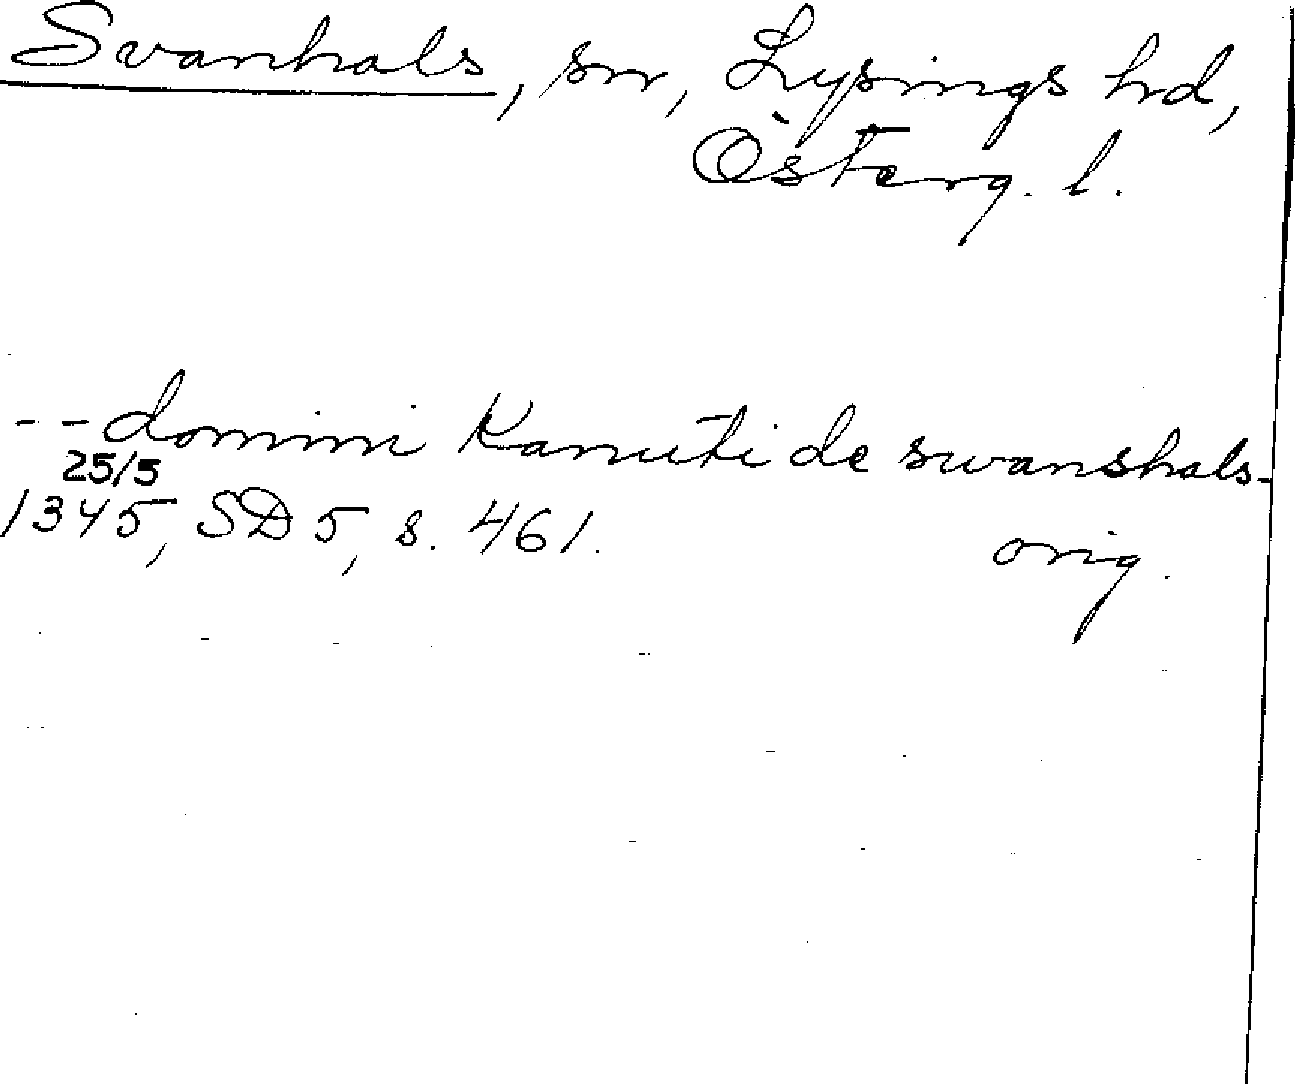 Svanhals, sn, Lysings hrd,
Österg. l.
-- domini Kanuti de swanshals -
25/5
1345, SD 5, s. 461. orig.